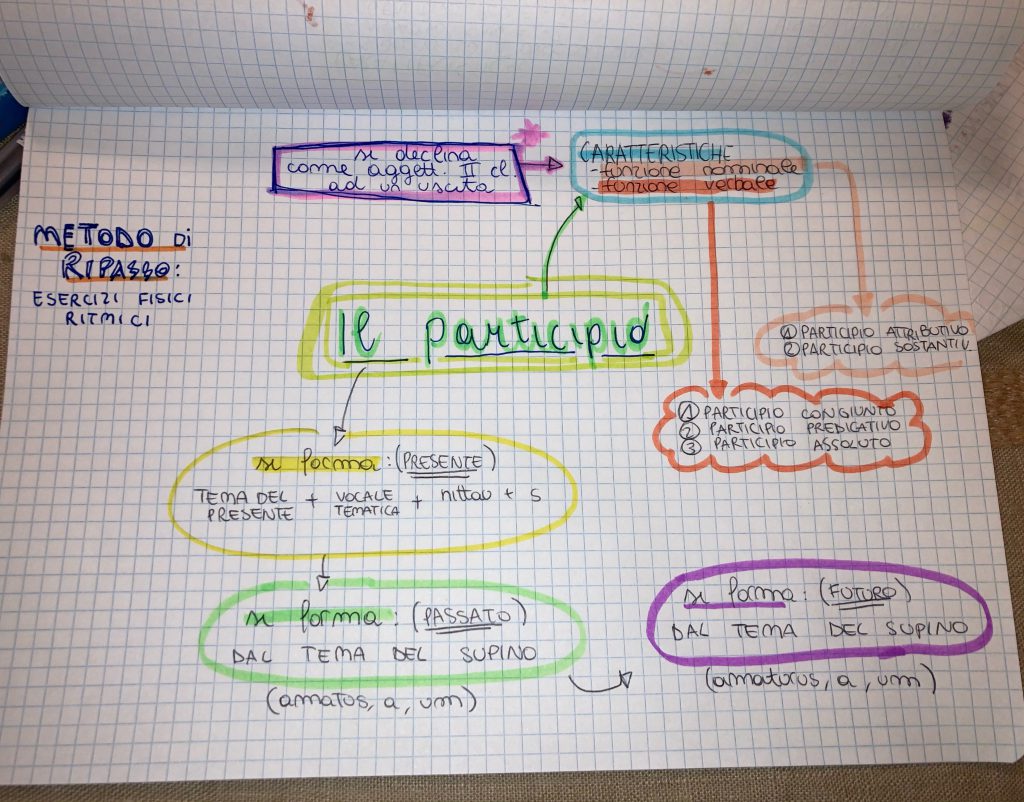 si declina
come aggett. II cl.
ad un'uscita
CARATTERISTICHE
- funzione nominale
- funzione verbale
METODO Di
RIPASSO:
ESERCIZI FISICI
RITMICI
Il participio
① PARTICIPIO ATTRIBUTIVO
② PARTICIPIO SOSTANTIV.
① PARTICIPIO CONGIUNTO
② PARTICIPIO PREDICATIVO
③ PARTICIPIO ASSOLUTO
si forma: (PRESENTE)
TEMA DEL + VOCALE + + s
PRESENTE TEMATICA
si forma: (PASSATO)
DAL TEMA DEL SUPINO
(amatus, a, um)
si forma: (FUTURO)
DAL TEMA DEL SUPINO
(amaturus, a, um)